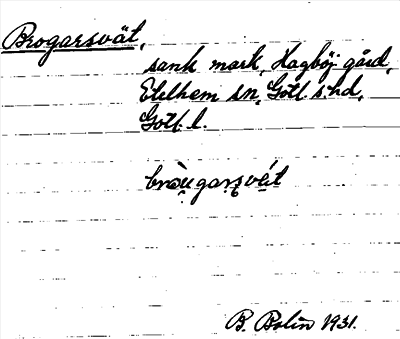 Brogarsvät,
sank mark, Hagböj gård,
Etelhem sn, Gotl. s. hd,
Gotl. l.
bròu̯garsvét
B. Bolin 1931.